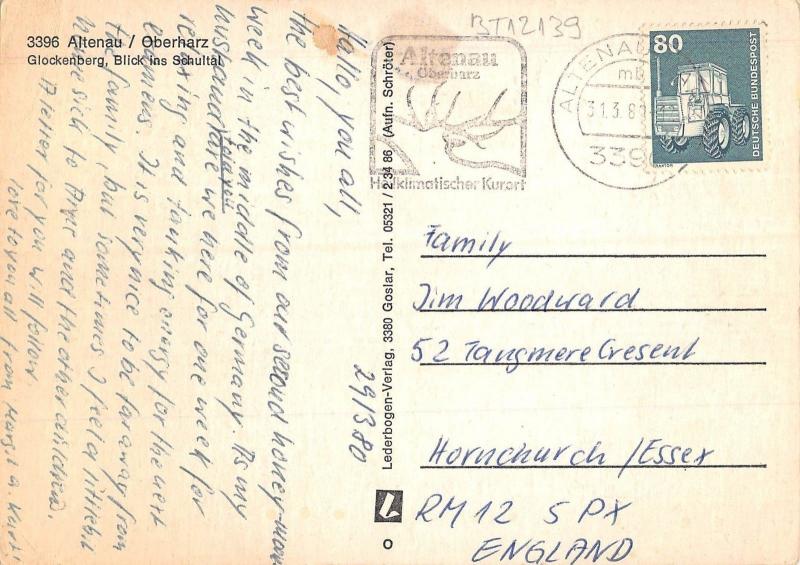 3396 Altenau / Oberharz
Glockenberg, Blick ins Schultal
BT12139
Altenau
Oberharz
Heilklimatischer Kurort
ALTENAU
31.3.8
339
80
DEUTSCHE BUNDESPOST
TRAKTOR
29/3.80
Hallo, you all,
the best wishes from our second honey-moon
week in the middle of Germany. As my
husband and we here for one week for
relaxing and tanking energy for the next
It is very nice to be far away from
the family, but sometimes I feel a little bit
home sick to and the other children.
A letter for you will follow.
love to you all from Margit a. Kurt!
Lederbogen-Verlag, 3380 Goslar, Tel. 05321 / 2 34 86 (Aufn. Schröter)
Family
Jim Woodward
52 Tangmere Cresent
Hornchurch / Essex
RM12 5PX
ENGLAND